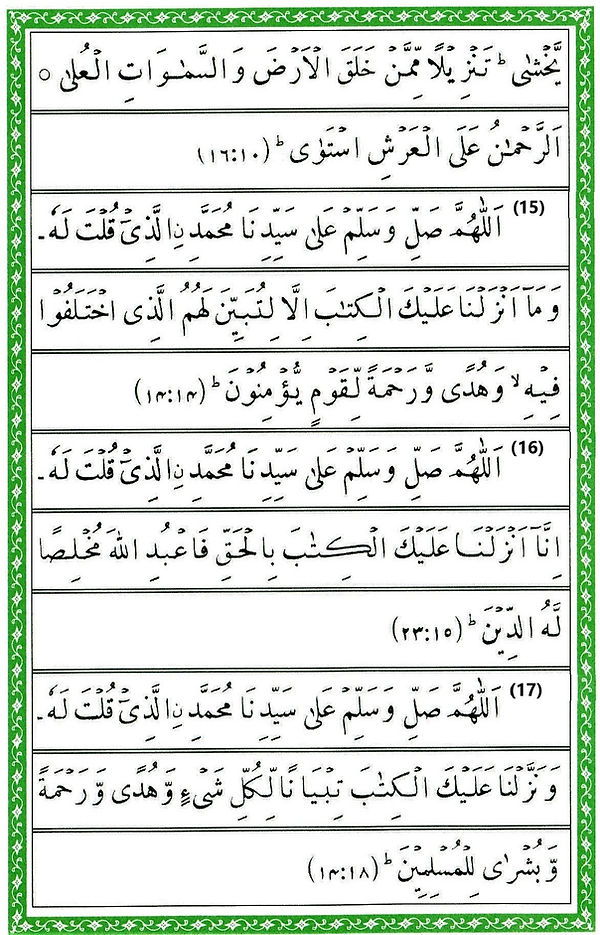 يَّخْشٰى ؕ تَنْزِيْلًا مِّمَّنْ خَلَقَ الْاَرْضَ وَالسَّمٰوَاتِ الْعُلٰى ○
اَلرَّحْمٰنُ عَلَى الْعَرْشِ اسْتَوٰى ؕ (۱۶:۱۰)
(15) اَللّٰهُمَّ صَلِّ وَسَلِّمْ عَلٰى سَيِّدِنَا مُحَمَّدِ نِ الَّذِىْٓ قُلْتَ لَهٗ ـ
وَمَآ اَنْزَلْنَا عَلَيْكَ الْكِتٰبَ اِلَّا لِتُبَيِّنَ لَهُمُ الَّذِى اخْتَلَفُوْا
فِيْهِ ۙ وَهُدًى وَّرَحْمَةً لِّقَوْمٍ يُّؤْمِنُوْنَ ؕ (۱۴:۱۴)
(16) اَللّٰهُمَّ صَلِّ وَسَلِّمْ عَلٰى سَيِّدِنَا مُحَمَّدِ نِ الَّذِىْٓ قُلْتَ لَهٗ ـ
اِنَّآ اَنْزَلْنَا عَلَيْكَ الْكِتٰبَ بِالْحَقِّ فَاعْبُدِ اللّٰهَ مُخْلِصًا
لَّهُ الدِّيْنَ ؕ (۲۳:۱۵)
(17) اَللّٰهُمَّ صَلِّ وَسَلِّمْ عَلٰى سَيِّدِنَا مُحَمَّدِ نِ الَّذِىْٓ قُلْتَ لَهٗ ـ
وَنَزَّلْنَا عَلَيْكَ الْكِتٰبَ تِبْيَانًا لِّكُلِّ شَىْءٍ وَّهُدًى وَّرَحْمَةً
وَّبُشْرٰى لِلْمُسْلِمِيْنَ ؕ (۱۴:۱۸)